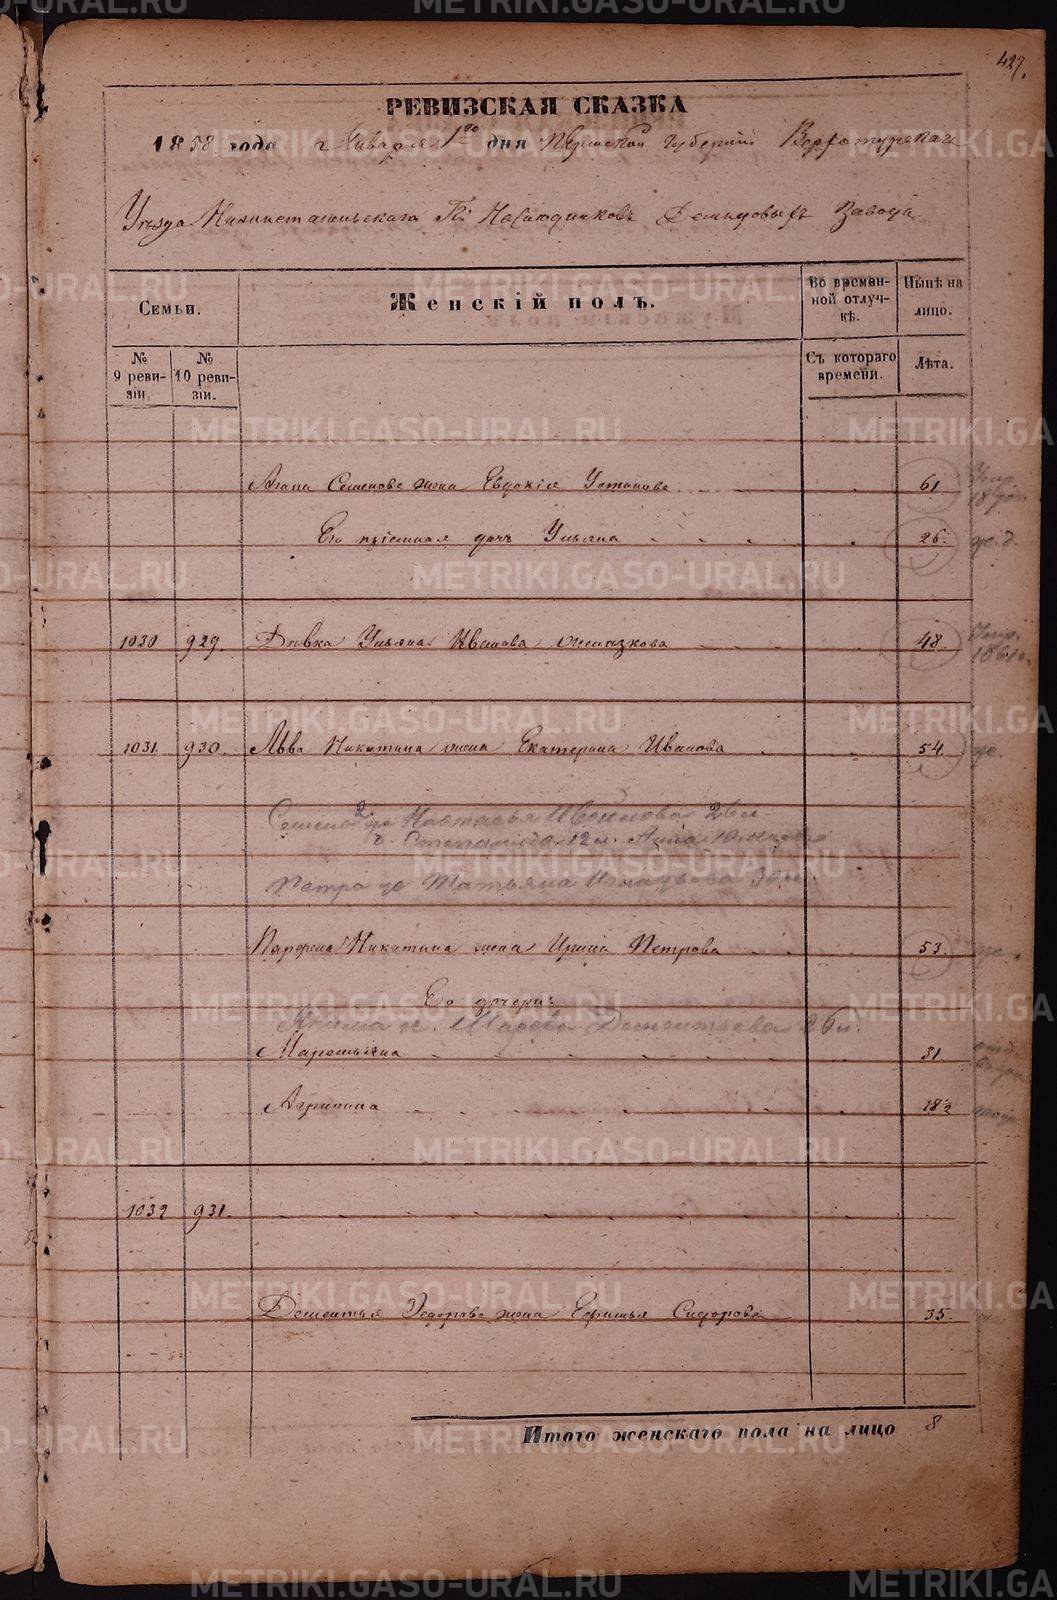 427.
РЕВИЗСКАЯ СКАЗКА
1858 года Января 1го дня Пермской Губернии Верхотурскаго
Уѣзда Нижнетагильскаго Гг. Наслѣдниковъ Демидовыхъ Завода
Семьи. Женскій полъ. Во временной отлучкѣ. Нынѣ на лицо.
№ 9 ревизіи. № 10 ревизіи. Съ котораго времени. Лѣта.
Агапа Семенова жена Евдокія Устинова 61
Его пріемная дочь Ульяна 26.
1030 929. Дѣвка Ульяна Иванова 48
1031. 930. Льва Никитина жена Екатерина Иванова 54
Семена 2 Настасья 26 л.
д. Степанида 12 л. Анна
Петра Татьяна
Парфена Никитина жена Ирина Петрова 53.
Его дочери:
Марфа Дементьева 26 л.
Маремьяна 31.
Агрипина 18½
1032 931.
Дементья Федорова жена Ефимья Сидорова 35.
Итого женскаго пола на лицо 8
METRIKI.GASO-URAL.RU